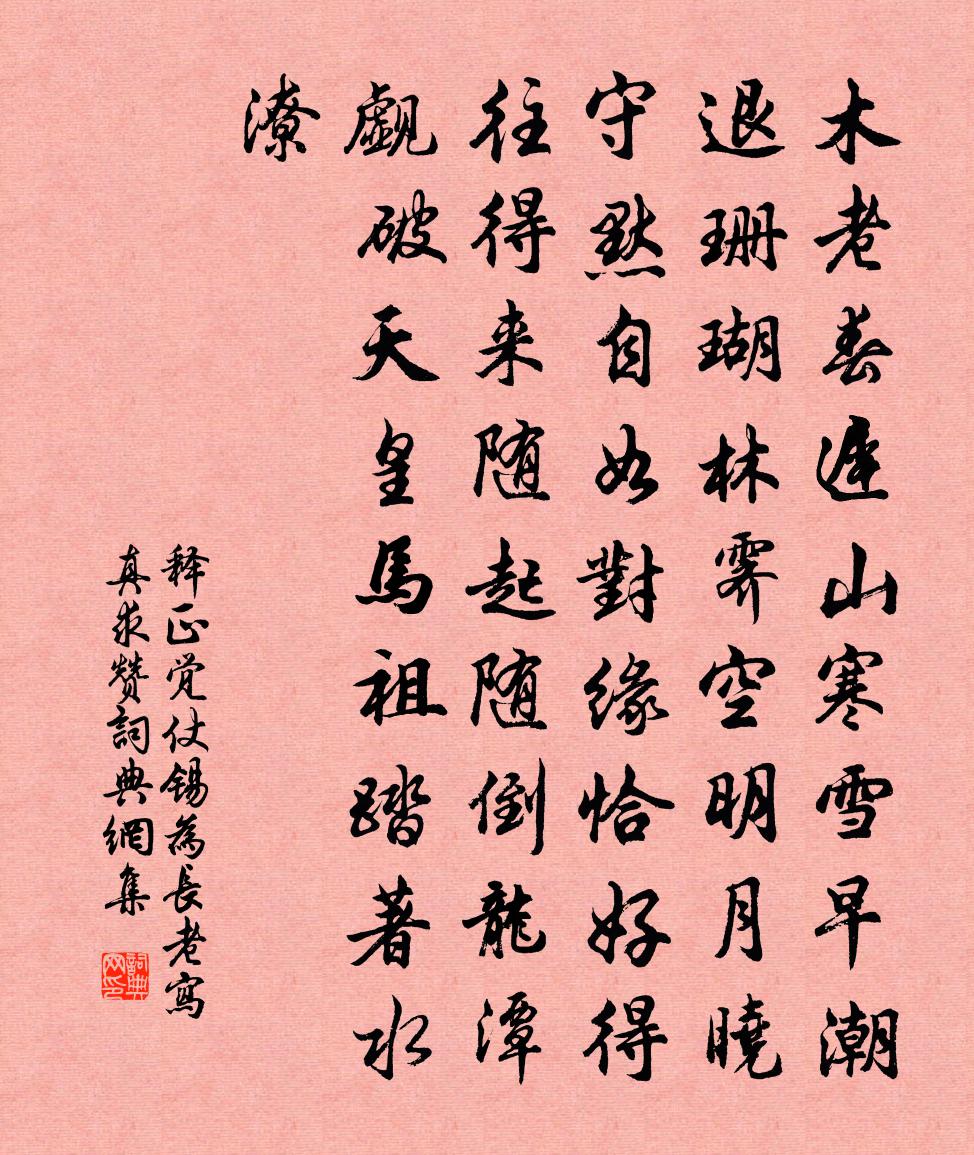 木老春遲山寒雪早潮
退珊瑚林霽空明月曉
守默自如對緣恰好得
往得来随起随倒龍潭
覷破天皇馬祖踏著水
潦
释正觉仗锡為長老寫
真求赞詞典網集
詞典网印